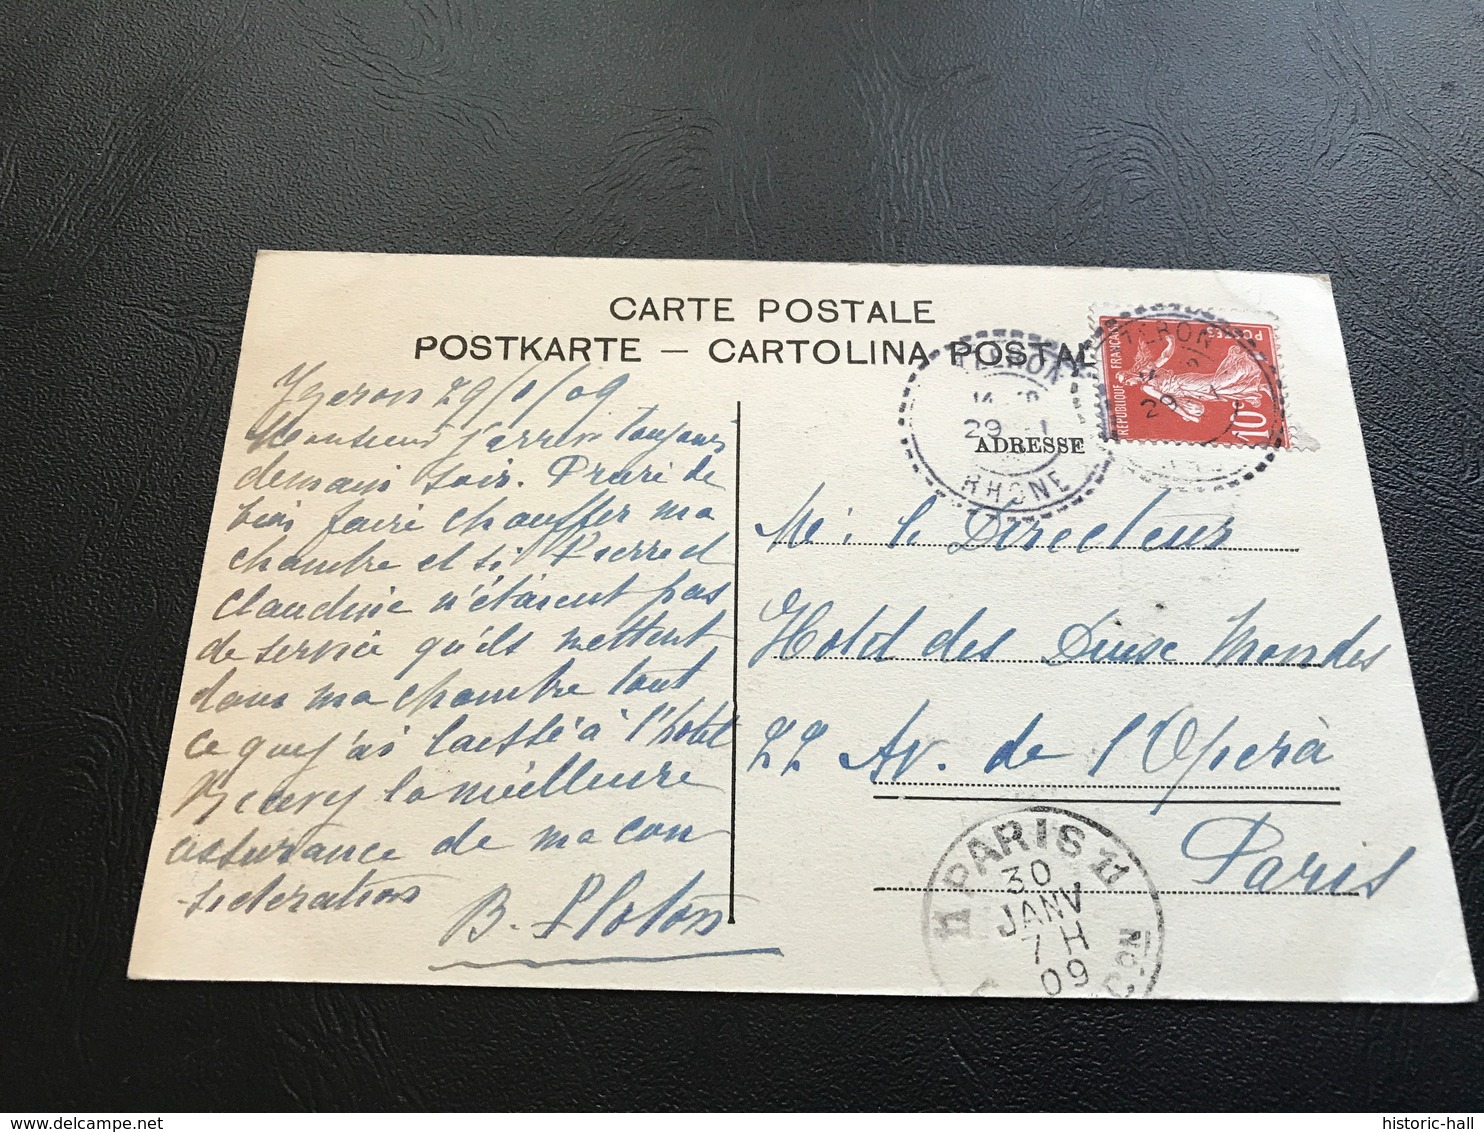 CARTE POSTALE
POSTKARTE — CARTOLINA POSTAL
Yzeron 29/1/09
Monsieur j'arrive toujours
demain soir. Prière de
bien faire chauffer ma
chambre et si Pierre et
Claudine n'étaient pas
de service qu'ils mettent
dans ma chambre tout
ce que j'ai laissé à l'hotel
Recevez la meilleure
assurance de ma con
-sideration
B. Ploton
YZERON
29 - 1
RHONE
YZERON
29
REPUBLIQUE FRANCAISE
POSTES
10
ADRESSE
Mr le Directeur
Hotel des Deux Mondes
22 Av. de l'Opéra
Paris
PARIS 11
11
30
JANV
7 H
09
historic-hall